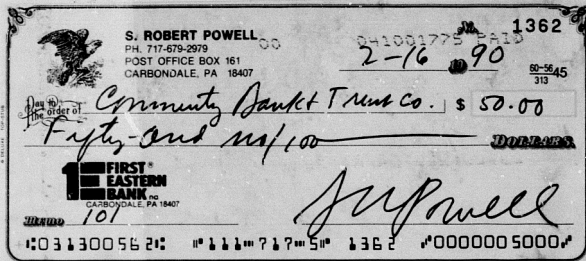 No. 1362
S. ROBERT POWELL
PH. 717-679-2979
POST OFFICE BOX 161
CARBONDALE, PA 18407
00 041001775 PAID
2-16 19 90
60-56 45
313
Pay to the order of Community Bank & Trust Co. $ 50.00
Fifty and no/100 DOLLARS
1E FIRST EASTERN BANK na
CARBONDALE, PA 18407
Memo 101 S R Powell
⑆031300562⑆ ⑈111⑈717⑈5⑈ 1362 ⑈0000005000⑈